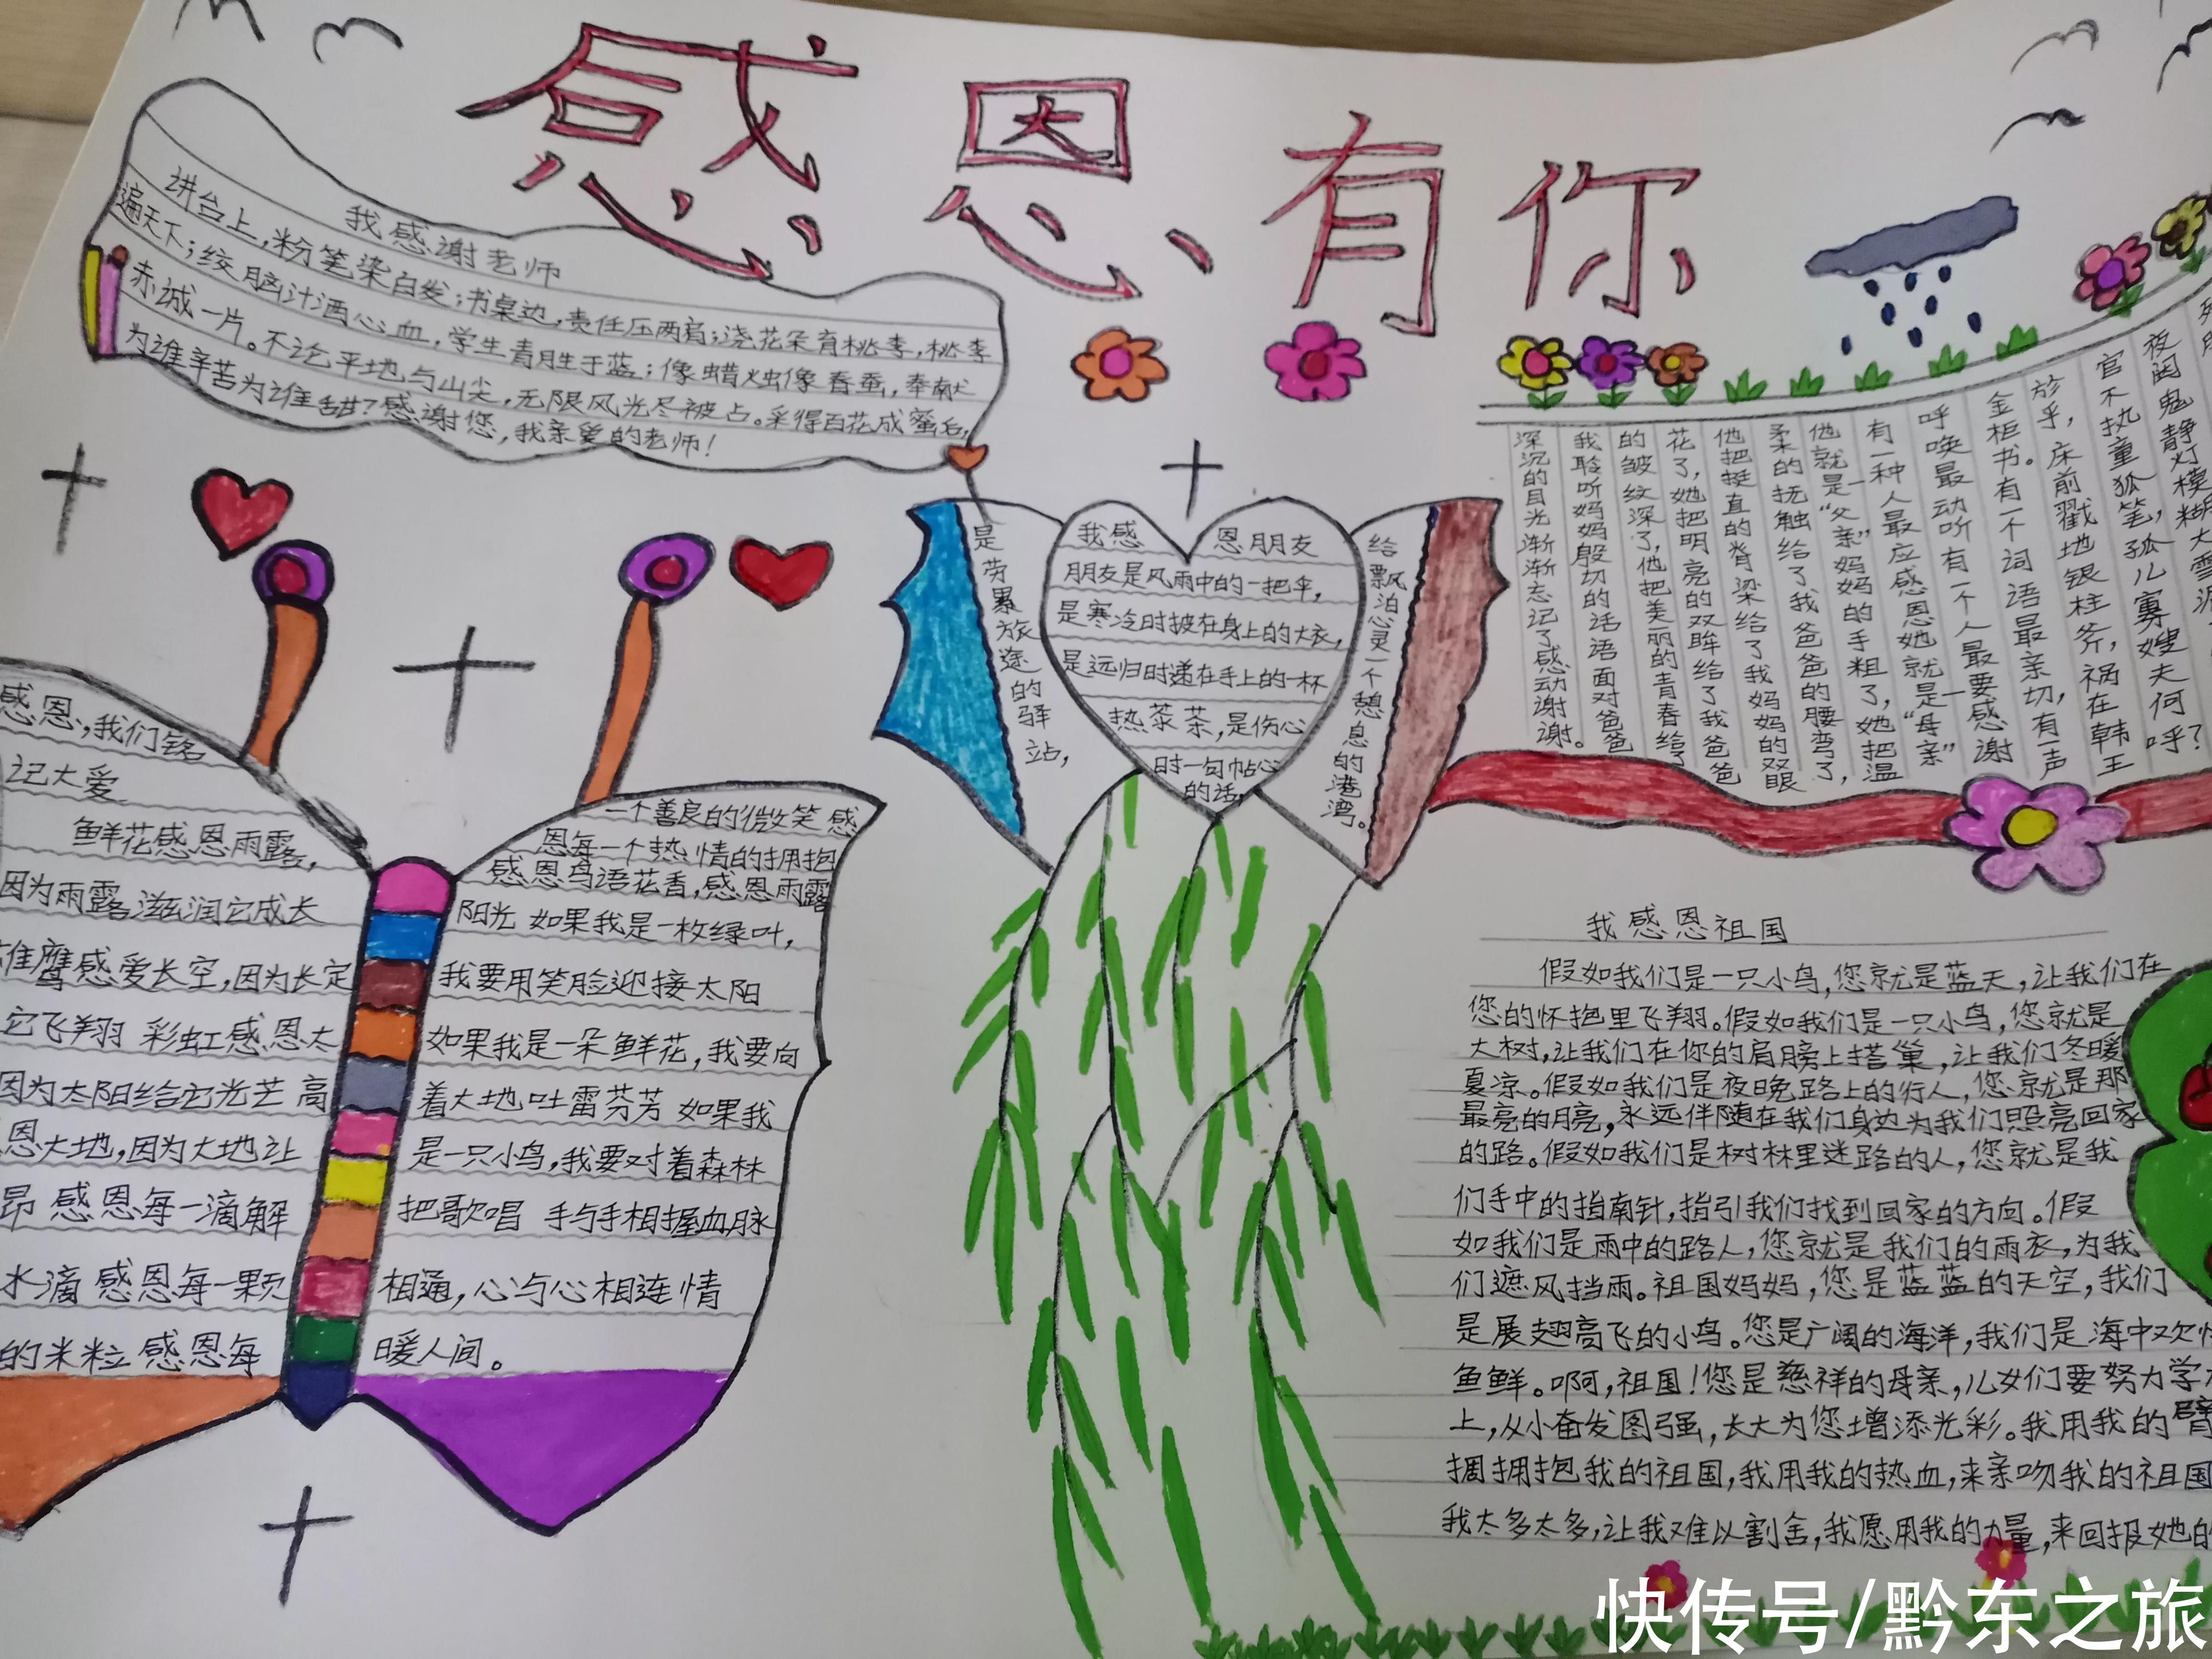 感恩有你
我感谢老师
讲台上，粉笔染白发；书桌边，责任压两肩；浇花朵育桃李，桃李
遍天下；绞脑汁洒心血，学生青胜于蓝；像蜡烛像春蚕，奉献
赤诚一片。不论平地与山尖，无限风光尽被占。采得百花成蜜后，
为谁辛苦为谁甜？感谢您，我亲爱的老师！
感恩，我们铭
记大爱
鲜花感恩雨露，
因为雨露滋润它成长
雄鹰感爱长空，因为长定
它飞翔 彩虹感恩太
因为太阳给它光芒 高
恩大地，因为大地让
昂 感恩每一滴解
水滴 感恩每一颗
的米粒 感恩每
一个善良的微笑 感
恩每一个热情的拥抱
感恩鸟语花香，感恩雨露
阳光 如果我是一枚绿叶，
我要用笑脸迎接太阳
如果我是一朵鲜花，我要向
着大地吐雷芬芳 如果我
是一只小鸟，我要对着森林
把歌唱 手与手相握血脉
相通，心与心相连情
暖人间。
是劳累旅途的驿站，
我感恩朋友
朋友是风雨中的一把伞，
是寒冷时披在身上的大衣，
是远归时递在手上的一杯
热茶，是伤心
时一句帖心
的话，
给飘泊心灵一个憩息的港湾。
夜阔鬼静灯模糊大雪
官不执童狐笔，孤儿寡嫂夫何呼？
於乎，床前戳地银柱斧，祸在韩王
金柜书。有一个词语最亲切，有一声
呼唤最动听有一个人最要感谢
有一种人最应感恩她就是“母亲”
他就是“父亲”妈妈的手粗了，她把温
柔的抚触给了我爸爸的腰弯了，
他把挺直的脊梁给了我妈妈的双眼
花了，她把明亮的双眸给了我爸爸
的皱纹深了，他把美丽的青春给了
我聆听妈妈殷切的话语面对爸爸
深沉的目光渐渐忘记了感动谢谢。
我感恩祖国
假如我们是一只小鸟，您就是蓝天，让我们在
您的怀抱里飞翔。假如我们是一只小鸟，您就是
大树，让我们在你的肩膀上搭巢，让我们冬暖
夏凉。假如我们是夜晚路上的行人，您就是那
最亮的月亮，永远伴随在我们身边为我们照亮回家
的路。假如我们是树林里迷路的人，您就是我
们手中的指南针，指引我们找到回家的方向。假
如我们是雨中的路人，您就是我们的雨衣，为我
们遮风挡雨。祖国妈妈，您是蓝蓝的天空，我们
是展翅高飞的小鸟。您是广阔的海洋，我们是海中欢
鱼鲜。啊，祖国！您是慈祥的母亲，儿女们要努力学
上，从小奋发图强，长大为您增添光彩。我用我的臂
拥抱我的祖国，我用我的热血，来亲吻我的祖国
我太多太多，让我难以割舍，我愿用我的力量，来回报她的
快传号/黔东之旅